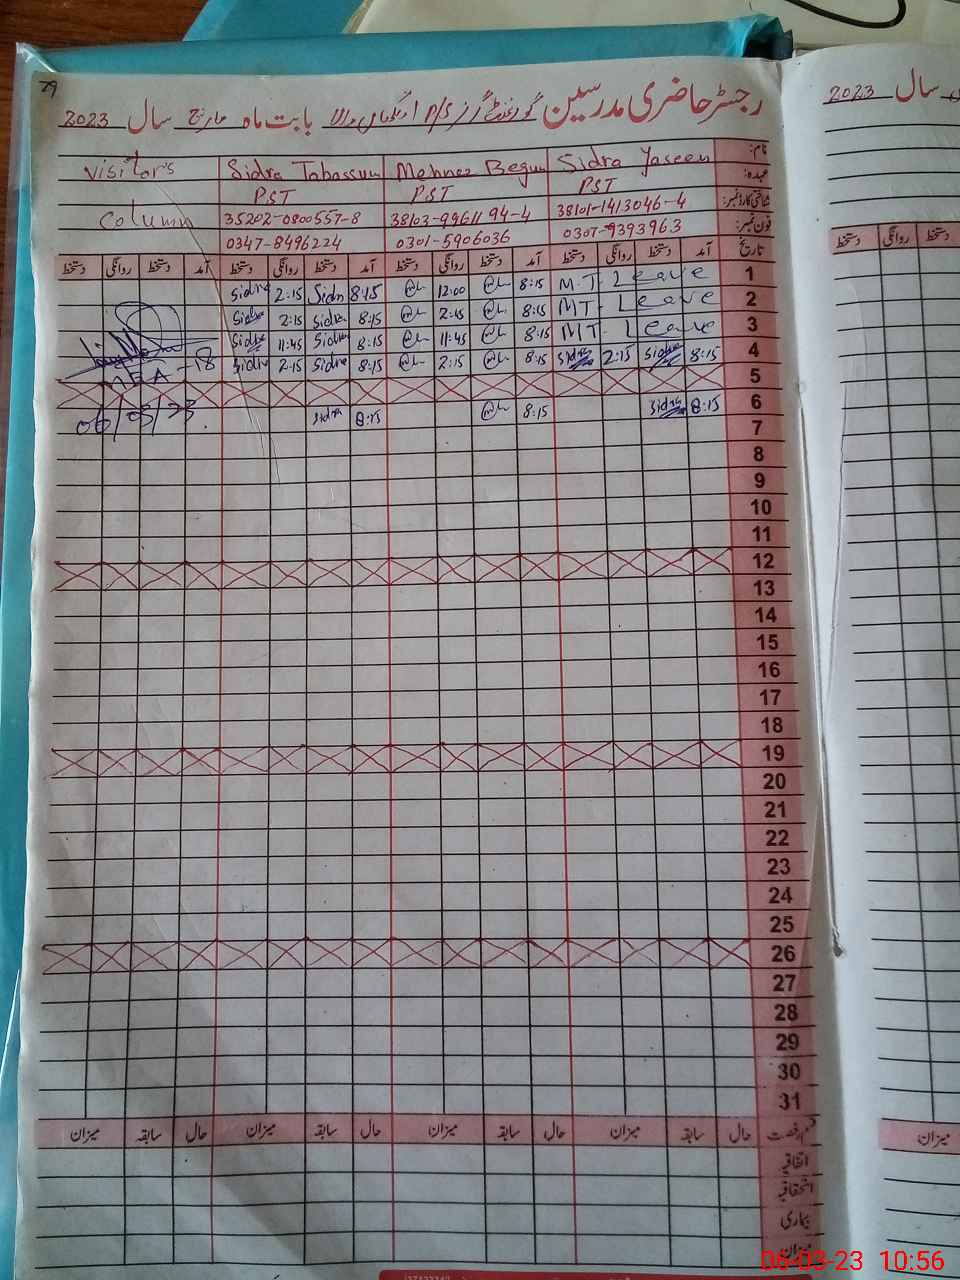 79
رجسٹر حاضری مدرسین گورنمنٹ گرلز P/S بابت ماہ مارچ سال 2023
نام: Sidra Yaseen Mehnaz Begum Sidra Tabassum Visitor's
عہدہ: PST PST PST
شناختی کارڈ نمبر: 38101-1413046-4 38103-9961194-4 35202-0800557-8 Column
فون نمبر: 0307-9393963 0301-5906036 0347-8496224
تاریخ آمد دستخط روانگی دستخط آمد دستخط روانگی دستخط آمد دستخط روانگی دستخط آمد دستخط روانگی دستخط
1 M.T. Leave 8:15 12:00 8:15 Sidra 2:15 Sidra
2 MT. Leave 8:15 2:15 8:15 Sidra 2:15 Sidra
3 MT. Leave 8:15 11:45 8:15 Sidra 11:45 Sidra
4 8:15 Sidra 2:15 Sidra 8:15 2:15 8:15 Sidra 2:15 Sidra MEA-18
5
6 8:15 Sidra 8:15 8:15 Sidra 06/03/23
7
8
9
10
11
12
13
14
15
16
17
18
19
20
21
22
23
24
25
26
27
28
29
30
31
قسم رخصت حال سابقہ میزان حال سابقہ میزان حال سابقہ میزان حال سابقہ میزان
اتفاقیہ
استحقاقیہ
بیماری
میزان
سال 2023
دستخط روانگی دستخط
میزان
06-03-23 10:56